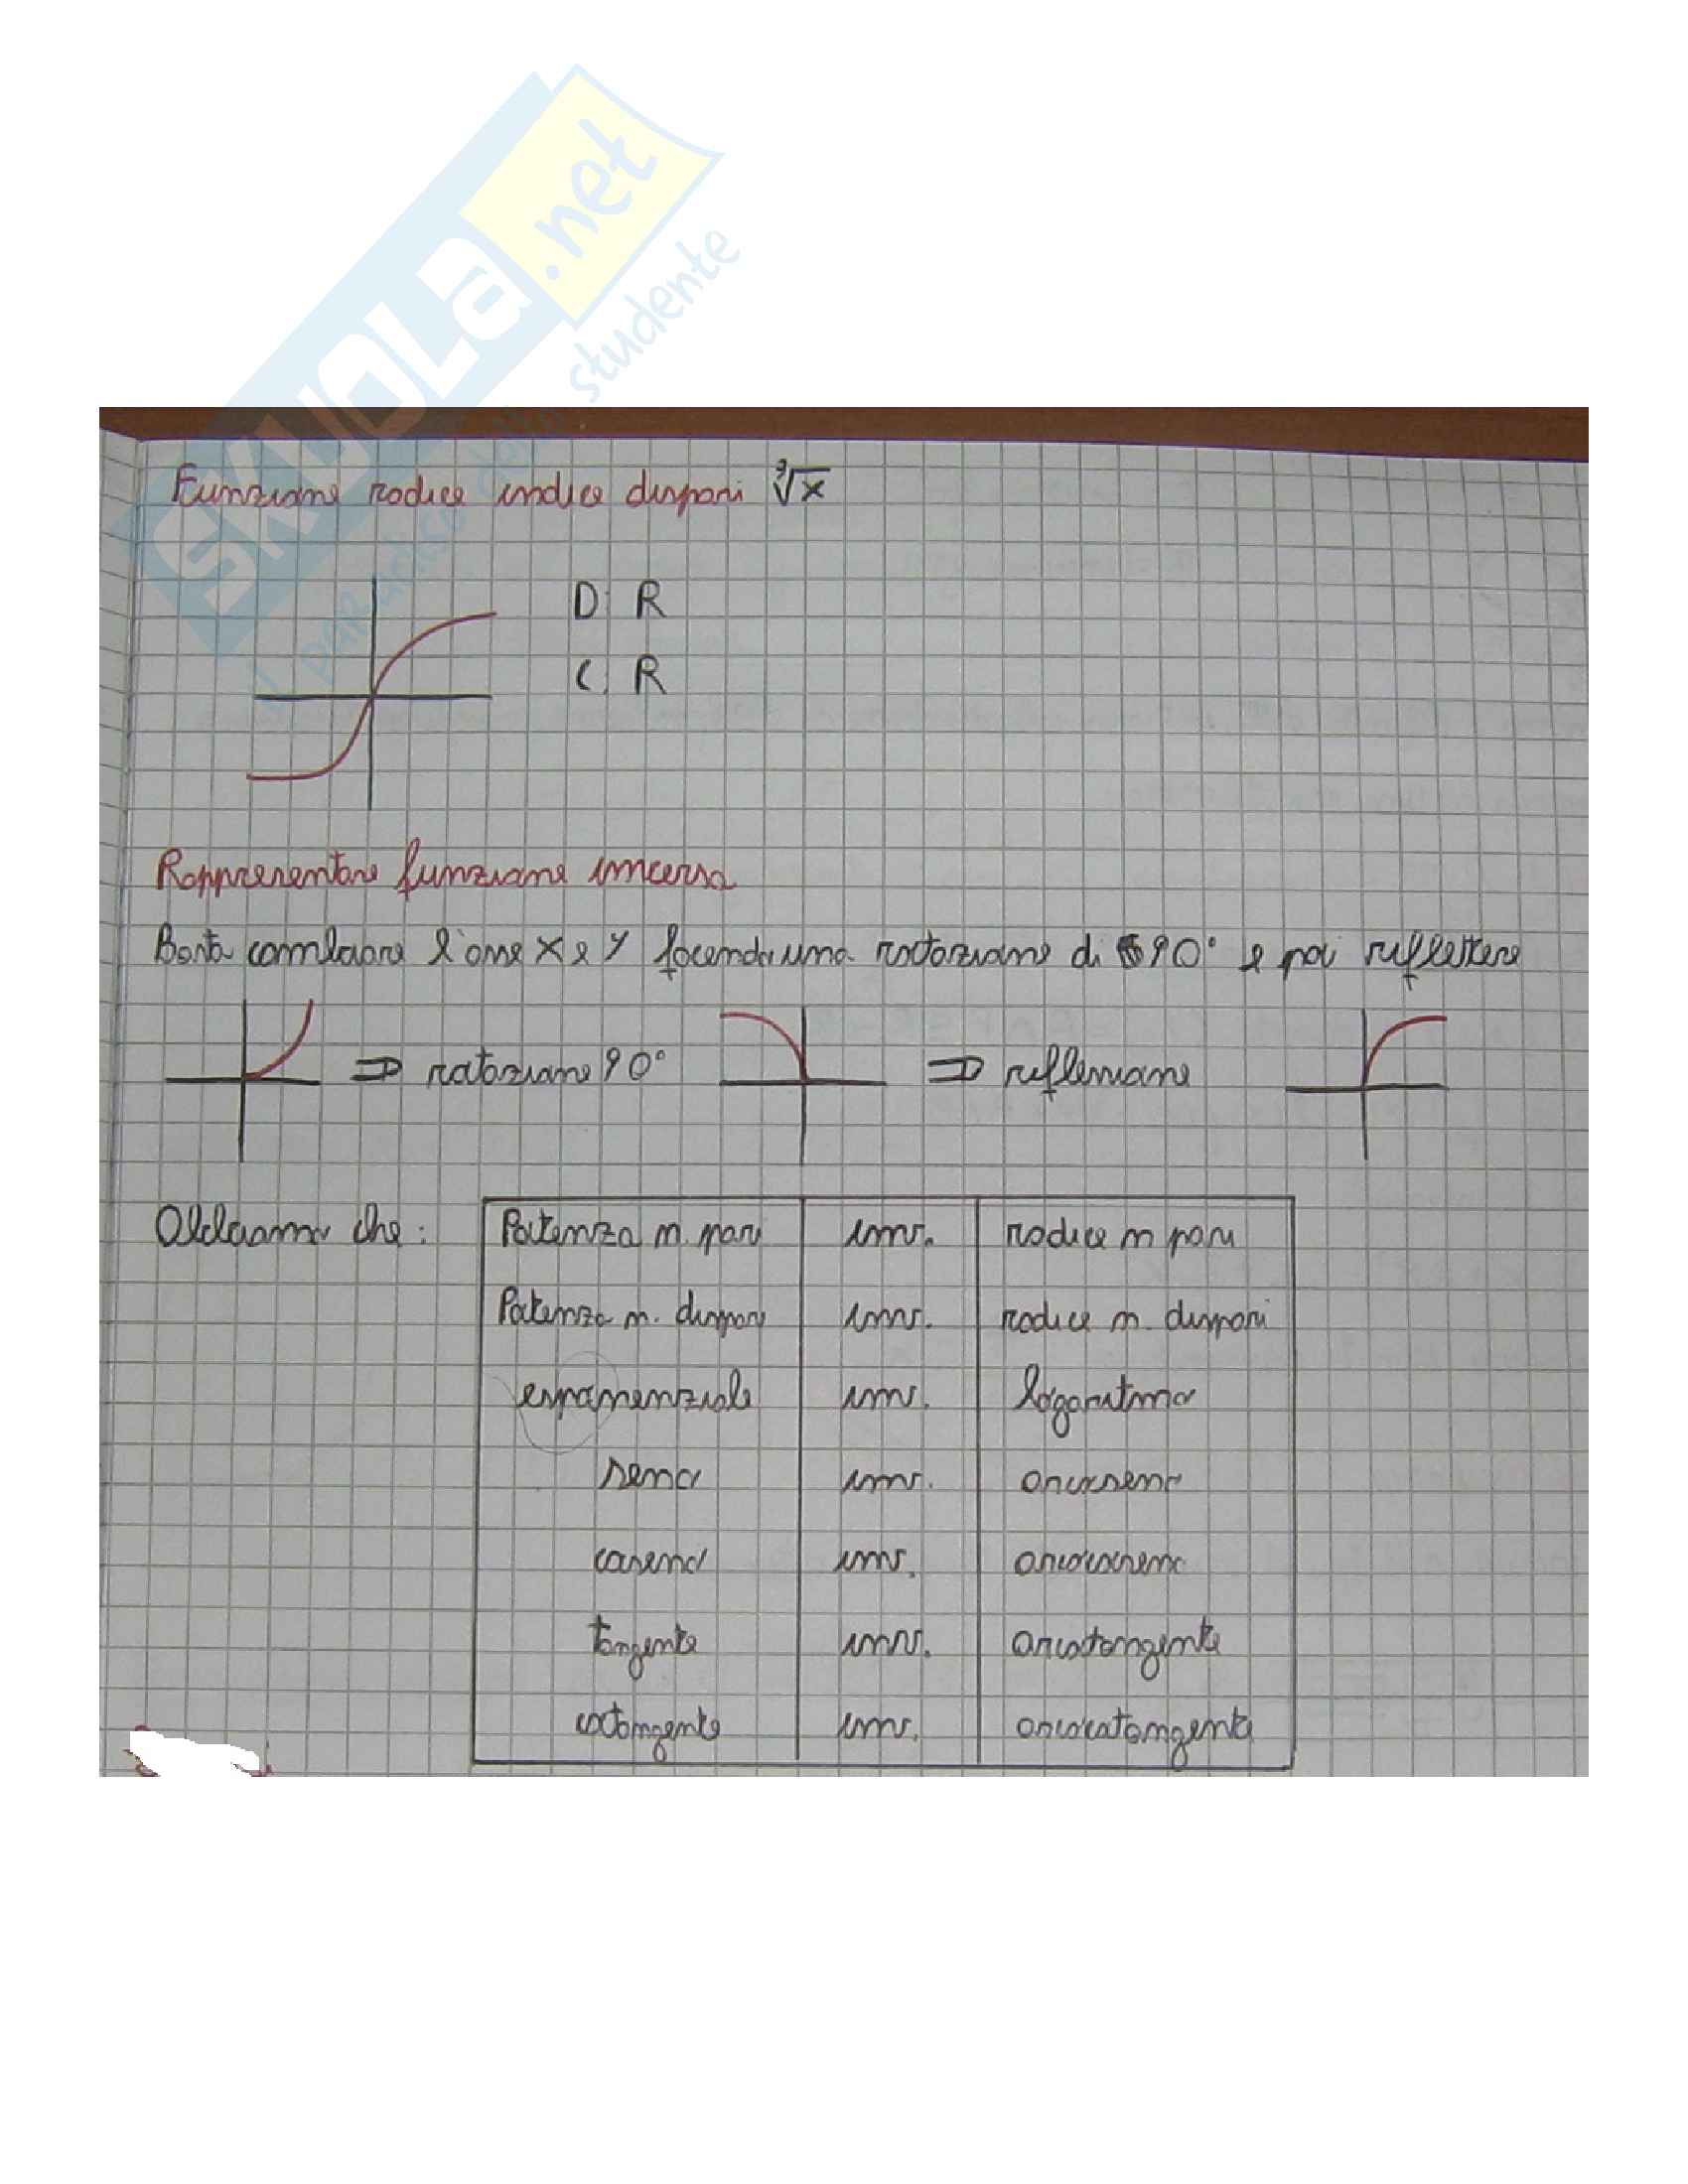 SKUOLa.net
studente
Funzione radice indice dispari ³√x
D: R
C: R
Rappresentare funzione inversa
Basta cambiare l'asse x e y facendo una rotazione di 90° e poi riflettere
⇒ rotazione 90° ⇒ riflessione
Abbiamo che: Potenza n. pari inv. radice n pari
Potenza n. dispari inv. radice n. dispari
esponenziale inv. logaritmo
seno inv. arcoseno
coseno inv. arcocoseno
tangente inv. arcotangente
cotangente inv. arcocotangente